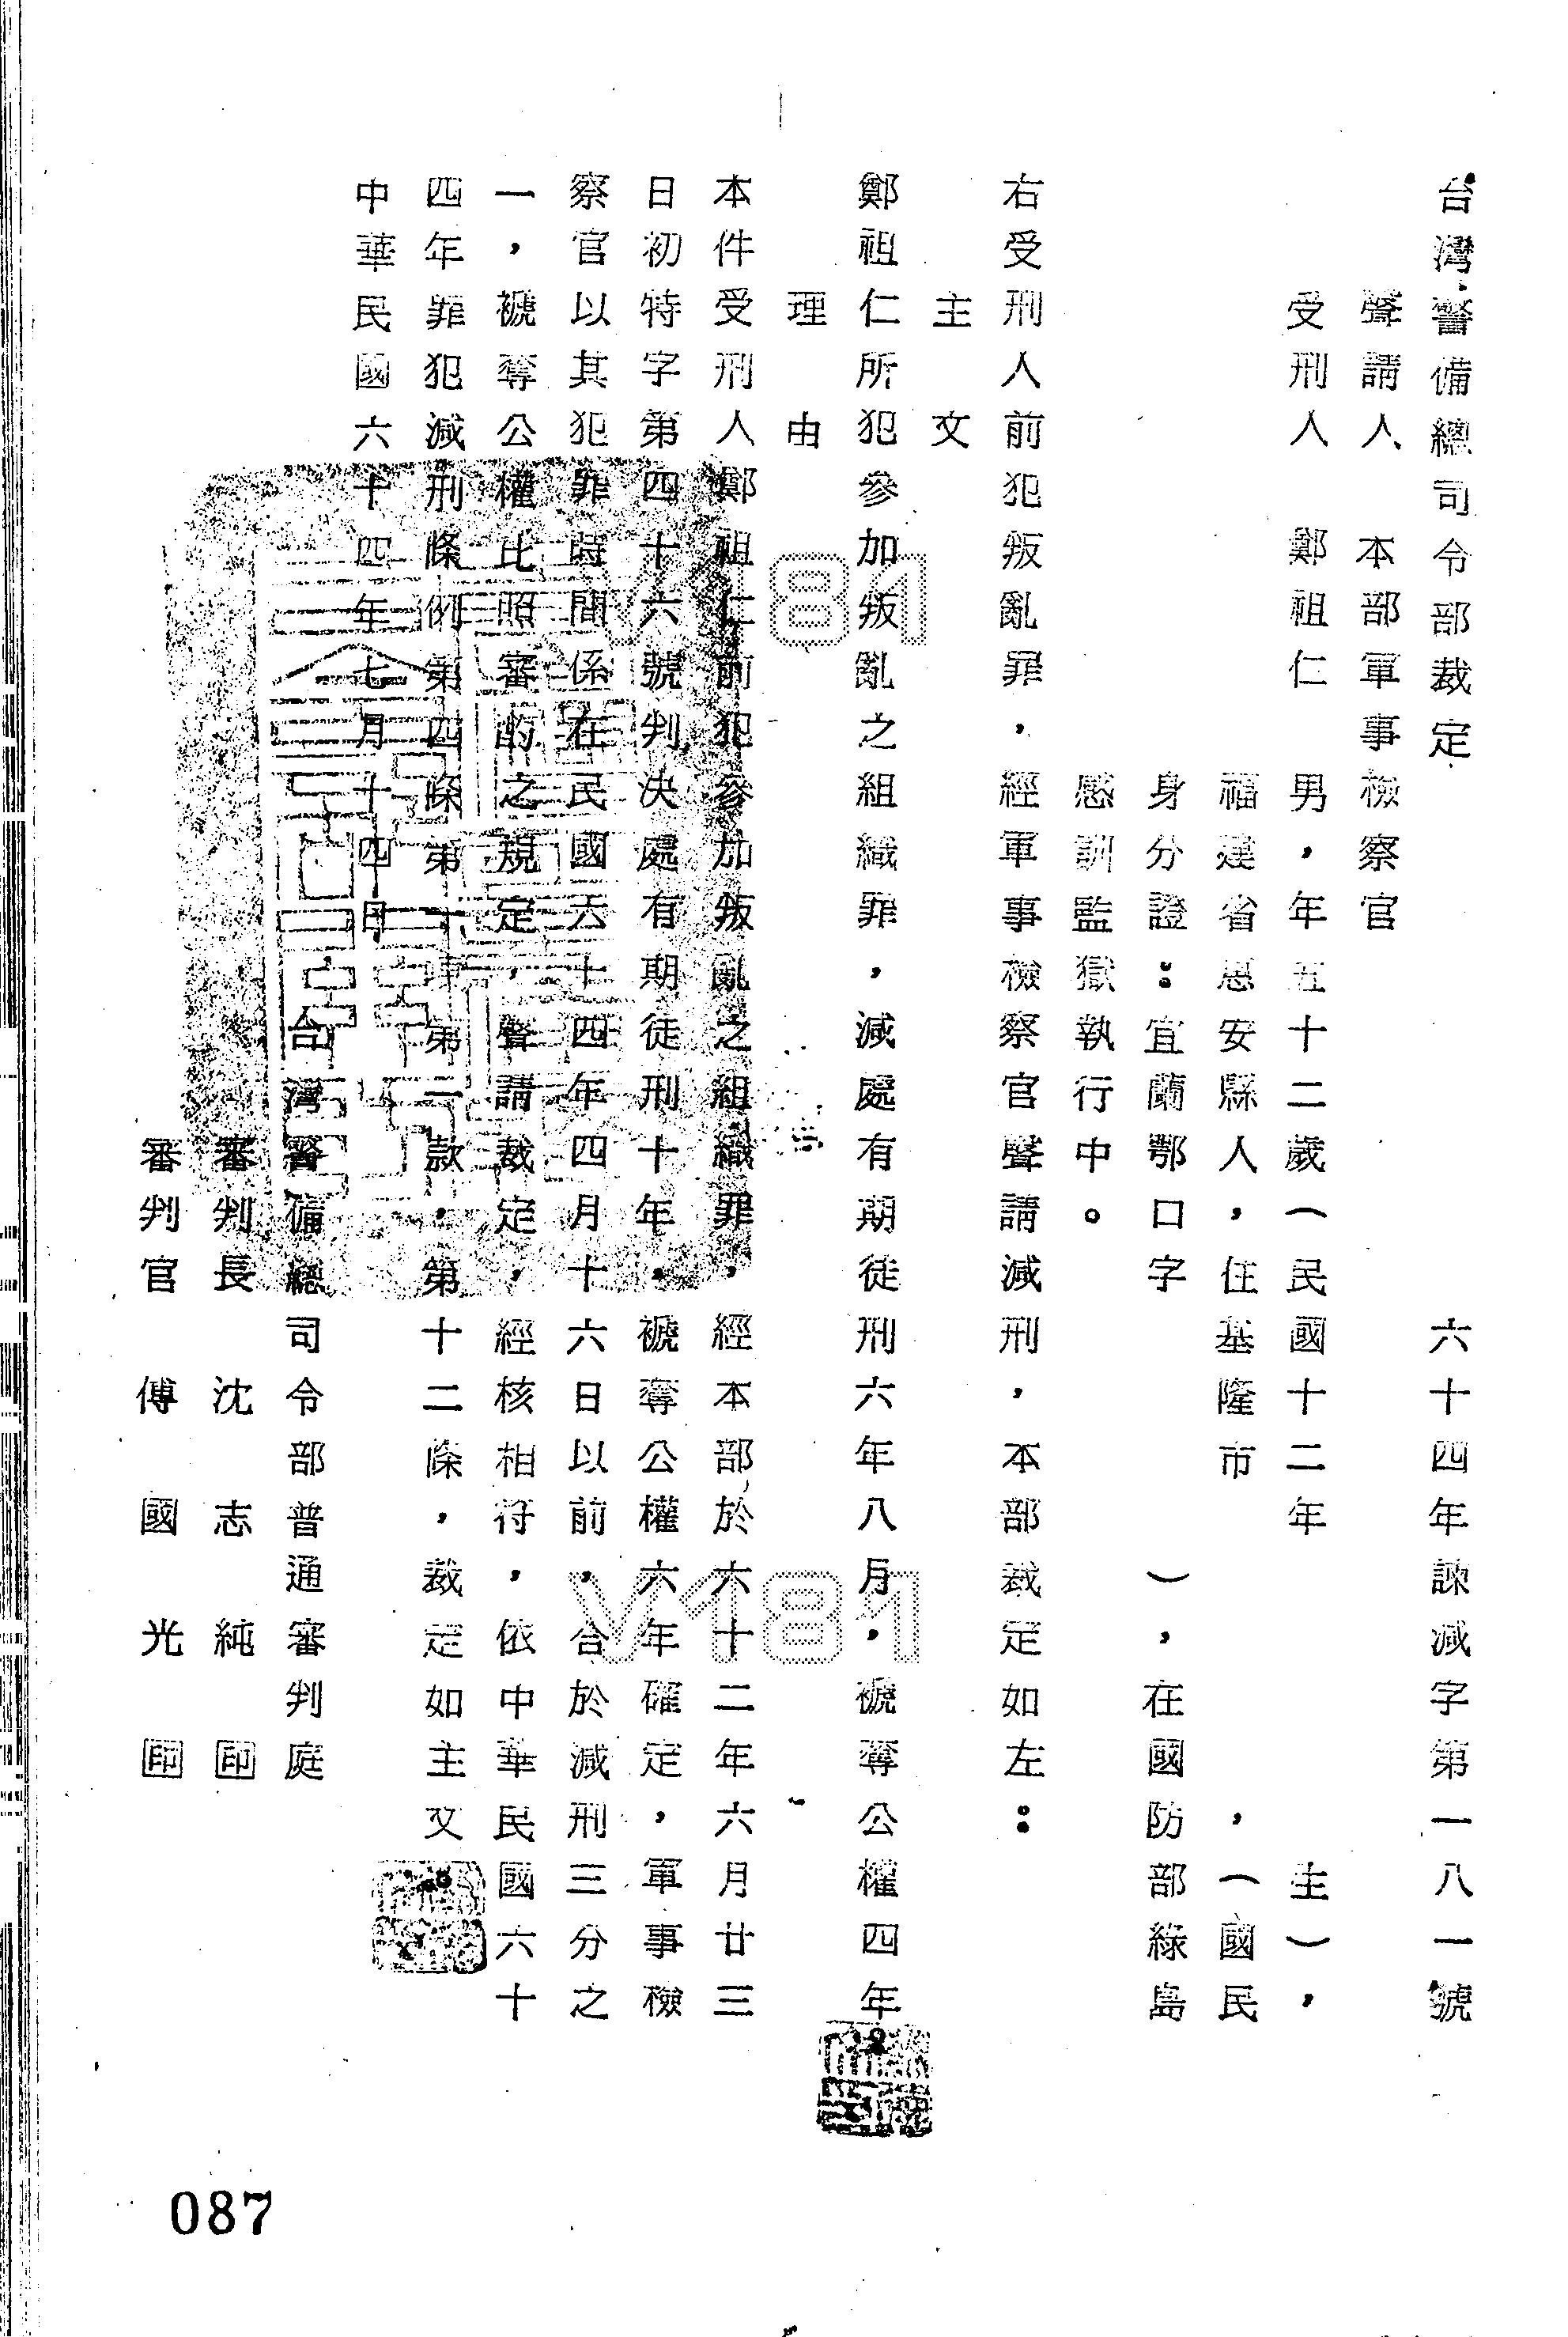 台灣警備總司令部裁定　六十四年諫減字第一八一號
聲請人　本部軍事檢察官
受刑人　鄭祖仁　男，年五十二歲（民國十二年　主），
福建省惠安縣人，住基隆市　，（國民
身分證：宜蘭鄂口字　），在國防部綠島
感訓監獄執行中。
右受刑人前犯叛亂罪，經軍事檢察官聲請減刑，本部裁定如左：
主文
鄭祖仁所犯參加叛亂之組織罪，減處有期徒刑六年八月，褫奪公權四年
理由
本件受刑人鄭祖仁前犯參加叛亂之組織罪，經本部於六十二年六月廿三
日初特字第四十六號判決處有期徒刑十年，褫奪公權六年確定，軍事檢
察官以其犯罪時間係在民國六十四年四月十六日以前，合於減刑三分之
一，褫奪公權比照審酌之規定，聲請裁定，經核相符，依中華民國六十
四年罪犯減刑條例第四條第一項第二款，第十二條，裁定如主文
中華民國六十四年七月十四日
台灣警備總司令部普通審判庭
審判長　沈志純　印
審判官　傅國光　印
087
V181
V181